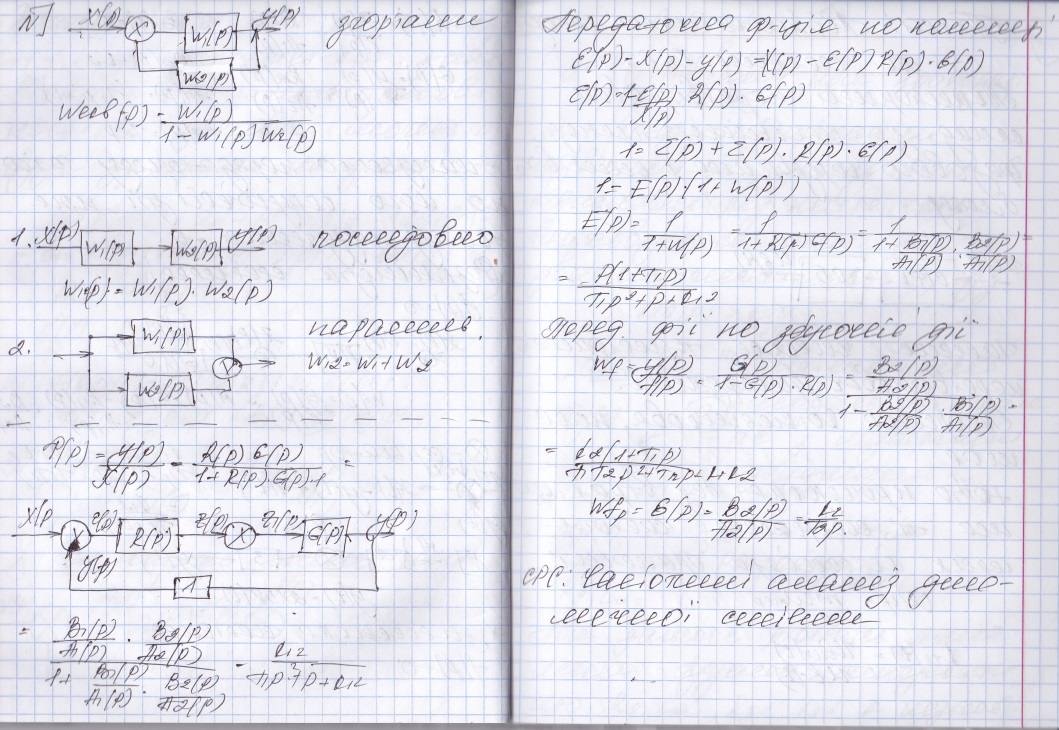 X(p)
y(p)
W1(p)
W2(p)
Wсхв(p) = W1(p) / 1 - W1(p) W2(p)
1. X(p)
W1(p)
W2(p)
y(p)
послідовно
W12(p) = W1(p) · W2(p)
2.
W1(p)
W2(p)
паралельн.
W12 = W1 + W2
P(p) = y(p) / X(p) = R(p) G(p) / 1 + R(p)·G(p)·1 =
X(p
ε(p)
R(p)
z(p)
X
z1(p)
G(p)
y(p)
y(p)
1
= B1(p)/A1(p) · B2(p)/A2(p) / 1 + B1(p)/A1(p) · B2(p)/A2(p) = k12 / T1p² + p + k12
Передаточна ф-ція по
E(p) = X(p) - y(p) = X(p) - E(p) R(p) · G(p)
R(p) · G(p)
1 = E(p) + E(p) · R(p) · G(p)
1 = E(p)·(1 + W(p))
E(p) = 1 / 1 + W(p) = 1 / 1 + R(p) G(p) = 1 / 1 + B1(p)/A1(p) · B2(p)/A2(p) =
= p(1 + T1p) / T1p² + p + k12
Перед. ф-ії по збуюючій дії
Wf = y(p) / f(p) = G(p) / 1 - G(p) · R(p) = B2(p)/A2(p) / 1 - B2(p)/A2(p) · B1(p)/A1(p) =
Wfp = G(p) = B2(p) / A2(p) = k2 / T2p.
СРС: Частотний аналіз дина-
мічної системи